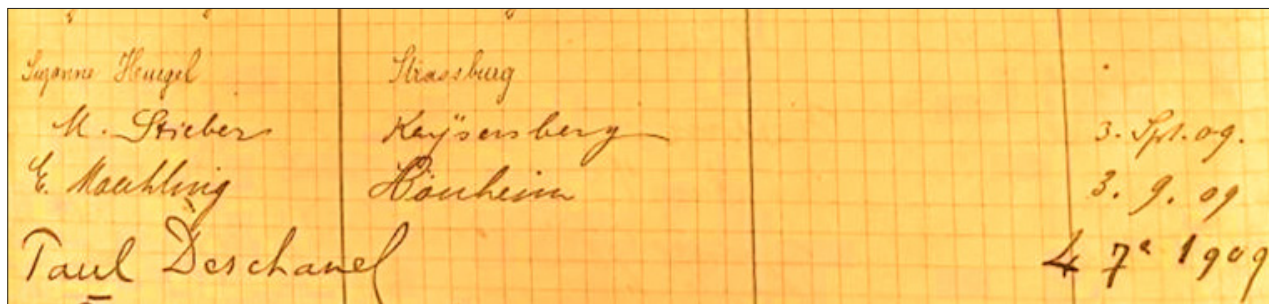 Suzanne Heugel Strassburg
M. Stieber Kaÿsersberg 3. Spt. 09.
E. Maechling Hönheim 3. 9. 09
Paul Deschanel 4 7e 1909